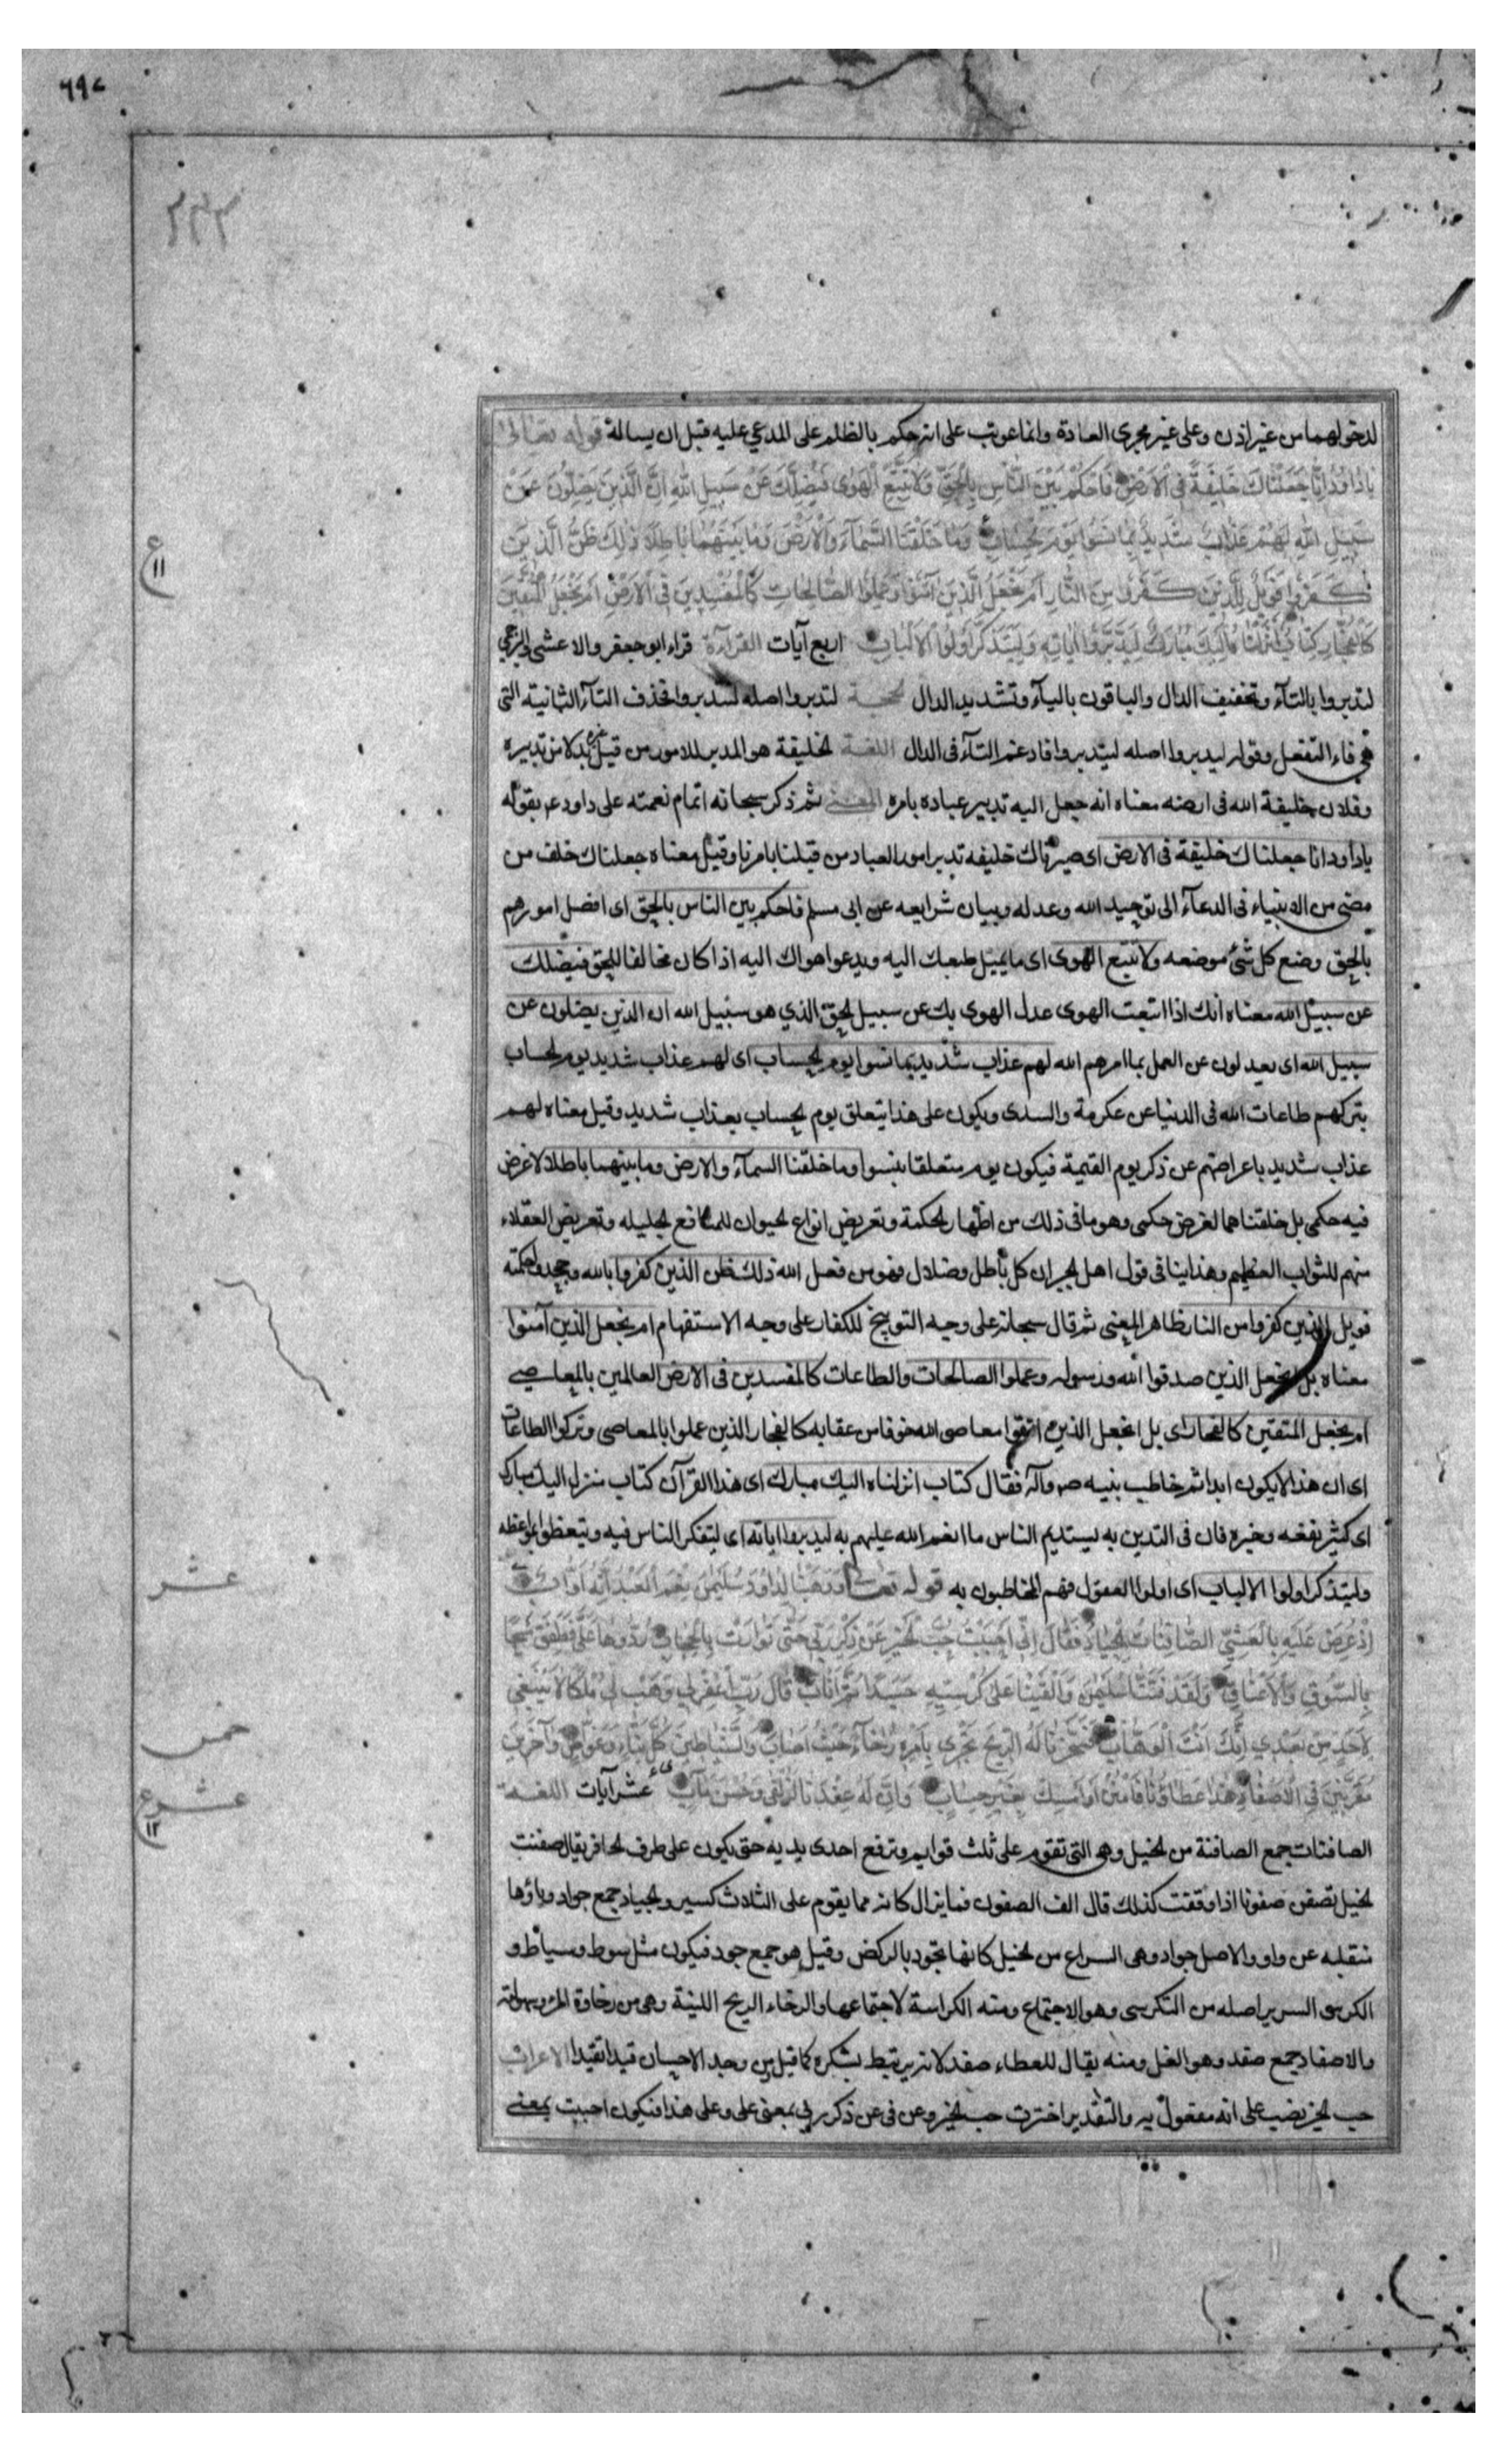 ٦٩٨
لدخولهما من غير اذن وعلى غير مجرى العادة وانما عوتب على انه حكم بالظلم على المدعي عليه قبل ان يساله قوله تعالى
يا داود انا جعلناك خليفة في الارض فاحكم بين الناس بالحق ولا تتبع الهوى فيضلك عن سبيل الله ان الذين يضلون عن
سبيل الله لهم عذاب شديد بما نسوا يوم الحساب وما خلقنا السمآء والارض وما بينهما باطلا ذلك ظن الذين
كفروا فويل للذين كفروا من النار ام نجعل الذين آمنوا وعملوا الصالحات كالمفسدين في الارض ام نجعل المتقين
كالفجار كتاب انزلناه اليك مبارك ليدبروا اياته وليتذكر اولوا الالباب اربع آيات القرآءة قراء ابو جعفر والاعشى والبرجمي
لتدبروا بالتآء وتخفيف الدال والباقون باليآء وتشديد الدال الحجة لتدبروا اصله لتتدبروا فحذف التآء الثانية التى
هي فاء التفعل وقوله ليدبروا اصله ليتدبروا فادغم التآء فى الدال اللغة الخليفة هو المدبر للامور من قبل غيره بدلا من تدبيره
وفلان خليفة الله فى ارضه معناه انه جعل اليه تدبير عباده بامره المعنى ثم ذكر سبحانه اتمام نعمته على داود عم بقوله
يا داود انا جعلناك خليفة فى الارض اى صيرناك خليفه تدبر امور العباد من قبلنا بامرنا وقيل معناه جعلناك خلف من
مضى من الانبياء فى الدعآء الى توحيد الله وعدله وبيان شرايعه عن ابى مسلم فاحكم بين الناس بالحق اى افصل امورهم
بالحق وضع كل شئ موضعه ولا تتبع الهوى اى ما يميل طبعك اليه ويدعوا هواك اليه اذا كان مخالفا للحق فيضلك
عن سبيل الله معناه انك اذا اتبعت الهوى عدل الهوى بك عن سبيل الحق الذي هو سبيل الله ان الذين يضلون عن
سبيل الله اى يعدلون عن العمل بما امرهم الله لهم عذاب شديد بما نسوا يوم الحساب اى لهم عذاب شديد يوم الحساب
بتركهم طاعات الله فى الدنيا عن عكرمة والسدى ويكون على هذا يتعلق يوم الحساب بعذاب شديد وقيل معناه لهم
عذاب شديد باعراضهم عن ذكر يوم القيمة فيكون يوم متعلقا بنسوا وما خلقنا السمآء والارض وما بينهما باطلا لا غرض
فيه حكمى بل خلقناهما لغرض حكمى وهو ما فى ذلك من اظهار الحكمة وتعريض انواع الحيوان للمنافع الجليله وتعريض العقلاء
منهم للثواب العظيم وهذا ينافى قول اهل الجبر ان كل باطل وضلال فهو من فعل الله ذلك ظن الذين كفروا بالله وجحدوا حكمته
فويل للذين كفروا من النار ظاهر المعنى ثم قال سبحانه على وجه التوبيخ للكفار على وجه الاستفهام ام نجعل الذين آمنوا
معناه بل انجعل الذين صدقوا الله ورسوله وعملوا الصالحات والطاعات كالمفسدين فى الارض العالمين بالمعاصي
ام نجعل المتقين كالفجار اى بل انجعل الذين اتقوا معاصى الله خوفا من عقابه كالفجار الذين عملوا بالمعاصى وتركوا الطاعات
اى ان هذا لا يكون ابدا ثم خاطب نبيه صم وآله فقال كتاب انزلناه اليك مبارك اى هذا القرآن كتاب منزل اليك مبارك
اى كثير نفعه وخيره فان فى التدين به يستديم الناس ما انعم الله عليهم به ليدبروا اياته اى ليتفكر الناس فيه ويتعظوا بمواعظه
وليتذكر اولوا الالباب اى اولوا العقول فهم المخاطبون به قوله تعالى ووهبنا لداود سليمن نعم العبد انه اواب
اذ عرض عليه بالعشي الصافنات الجياد فقال اني احببت حب الخير عن ذكر ربي حتى توارت بالحجاب ردوها علي فطفق مسحا
بالسوق والاعناق ولقد فتنا سليمن والقينا على كرسيه جسدا ثم اناب قال رب اغفر لي وهب لي ملكا لا ينبغي
لاحد من بعدي انك انت الوهاب فسخرنا له الريح تجري بامره رخآء حيث اصاب والشياطين كل بناء وغواص وآخرين
مقرنين في الاصفاد هذا عطاؤنا فامنن او امسك بغير حساب وان له عندنا لزلفى وحسن مآب عشر آيات اللغة
الصافنات جمع الصافنة من الخيل وهى التى تقوم على ثلث قوايم وترفع احدى يديه حتى يكون على طرف الحافر يقال صفنت
الخيل تصفن صفونا اذا وقفت كذلك قال الف الصفون فما يزال كانه مما يقوم على الثلاث كسير والجياد جمع جواد وياؤها
منقلبه عن واو والاصل جواد وهى السراع من الخيل كانها تجود بالركض وقيل هو جمع جود فيكون مثل سوط وسياط و
الكرسى السرير اصله من التكرسى وهو الاجتماع ومنه الكراسة لاجتماعها والرخاء الريح اللينة وهى من رخاوة المر وسهولته
والاصفاد جمع صفد وهو الغل ومنه يقال للعطاء صفد لانه يرتبط بشكره كما قيل من وجد الاحسان قيدا تقيدا الاعراب
حب الخير نصب على انه مفعول به والتقدير اخترت حب الخير وعن فى عن ذكر ربي بمعنى على وعلى هذا فيكون احببت بمعنى
ع ١١
عشر
خمس
عشر ع ١٢